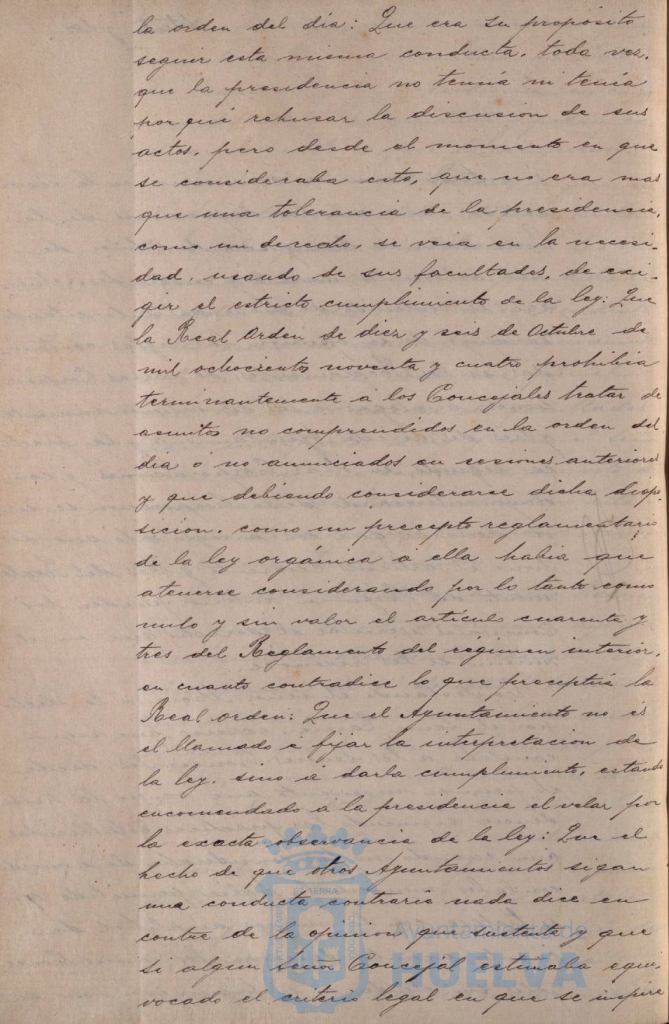 la orden del dia: Que era su proposito
seguir esta misma conducta, toda vez,
que la presidencia no tenia ni tenia
por qué rehusar la discusion de sus
actos, pero desde el momento en que
se consideraba esto, que no era mas
que una tolerancia de la presidencia,
como un derecho, se veia en la necesi-
dad, usando de sus facultades, de exi-
gir el estricto cumplimiento de la ley: Que
la Real Orden de diez y seis de Octubre de
mil ochocientos noventa y cuatro prohibia
terminantemente á los Concejales tratar de
asuntos no comprendidos en la orden del
dia ó no anunciados en sesiones anteriores
y que debiendo considerarse dicha dispo-
sicion, como un precepto reglamentario
de la ley orgánica á ella habia que
atenerse considerando por lo tanto como
nulo y sin valor el articulo cuarenta y
tres del Reglamento del régimen interior,
en cuanto contradice lo que preceptúa la
Real orden: Que el Ayuntamiento no és
el llamado á fijar la interpretacion de
la ley, sino á darla cumplimiento, estando
encomendado á la presidencia el velar por
la exacta observancia de la ley: Que el
hecho de que otros Ayuntamientos sigan
una conducta contraria nada dice en
contra de la opinion que sustenta y que
si algun señor Concejal estimaba equi-
vocado el criterio legal en que se inspire
Ayuntamiento de
HUELVA